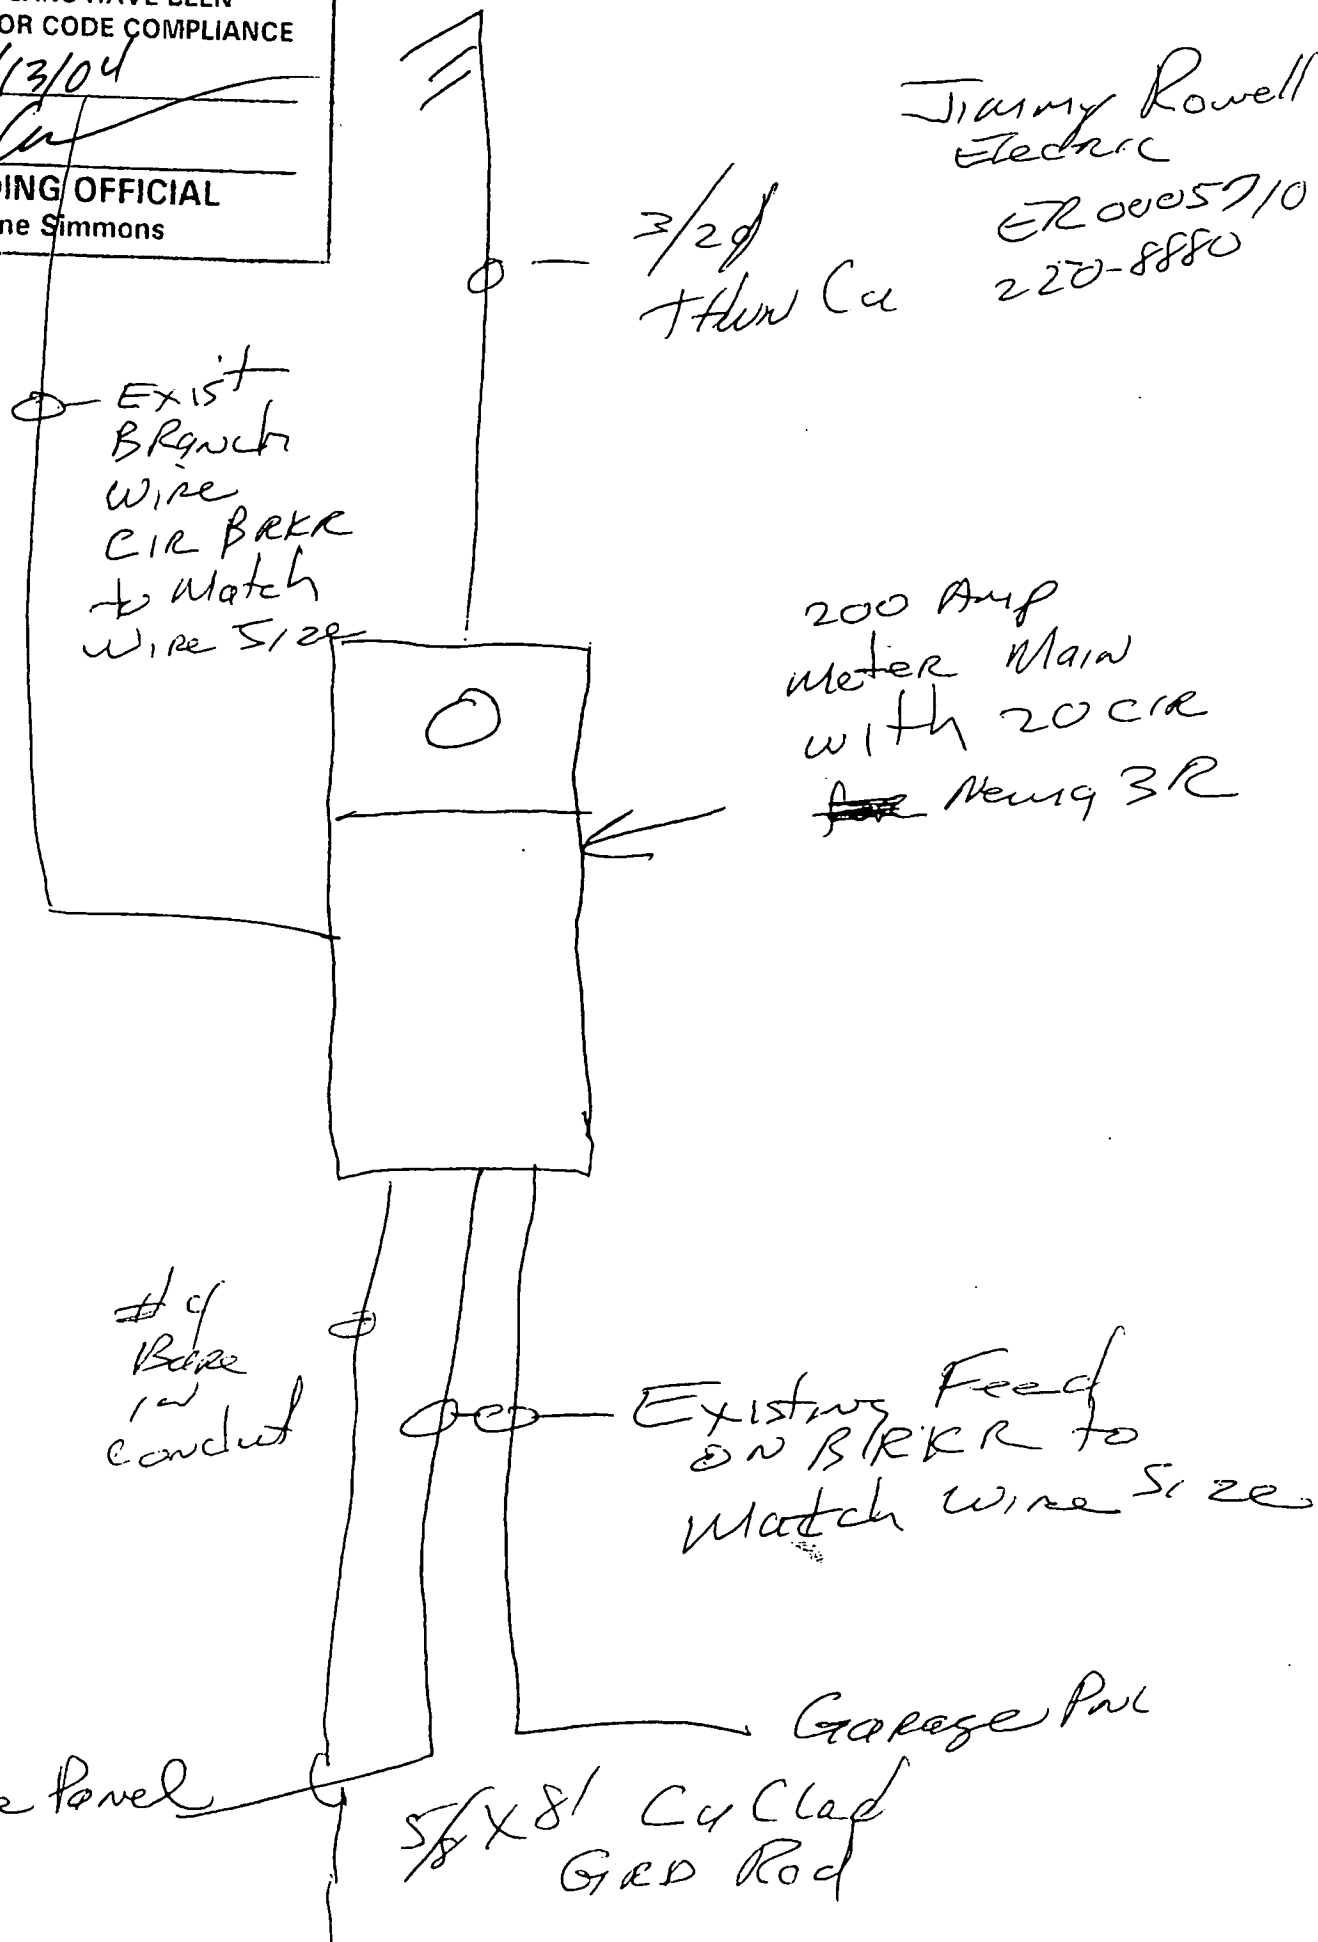 HAVE BEEN
OR CODE COMPLIANCE
/13/04
DING OFFICIAL
ne Simmons
Jimmy Rowell
Electric
ER0005710
220-8880
3/2Ø
THWN Cu
Exist
BRanch
Wire
CIR BRKR
to Match
Wire Size
200 Amp
Meter Main
with 20 CIR
Nema 3R
#4
Bare
in
conduit
Existing Feed
ON BRKR to
Match Wire Size
Garage PNL
Panel
5/8 X 8' Cu Clad
GRD Rod